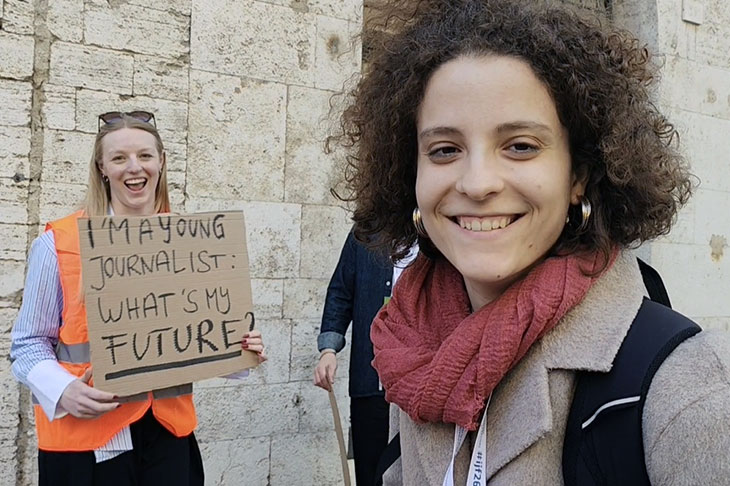 I'M A YOUNG
JOURNALIST:
WHAT'S MY
FUTURE?
#ijf26